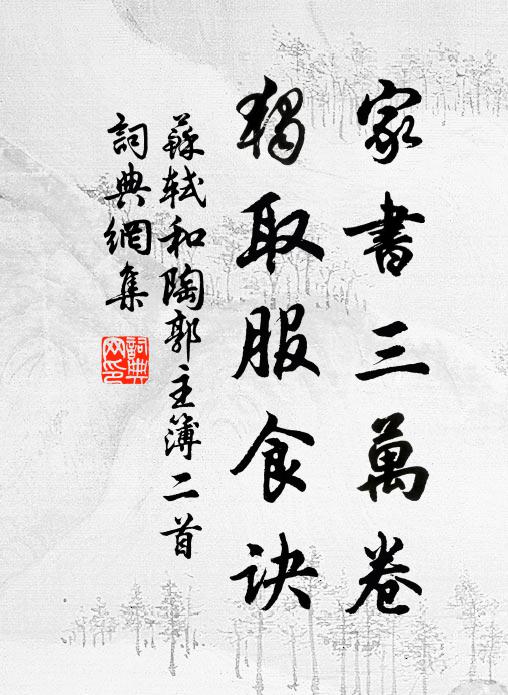 家書三萬卷
獨取服食訣
蘇軾和陶郭主簿二首
詞典網集
詞典网印